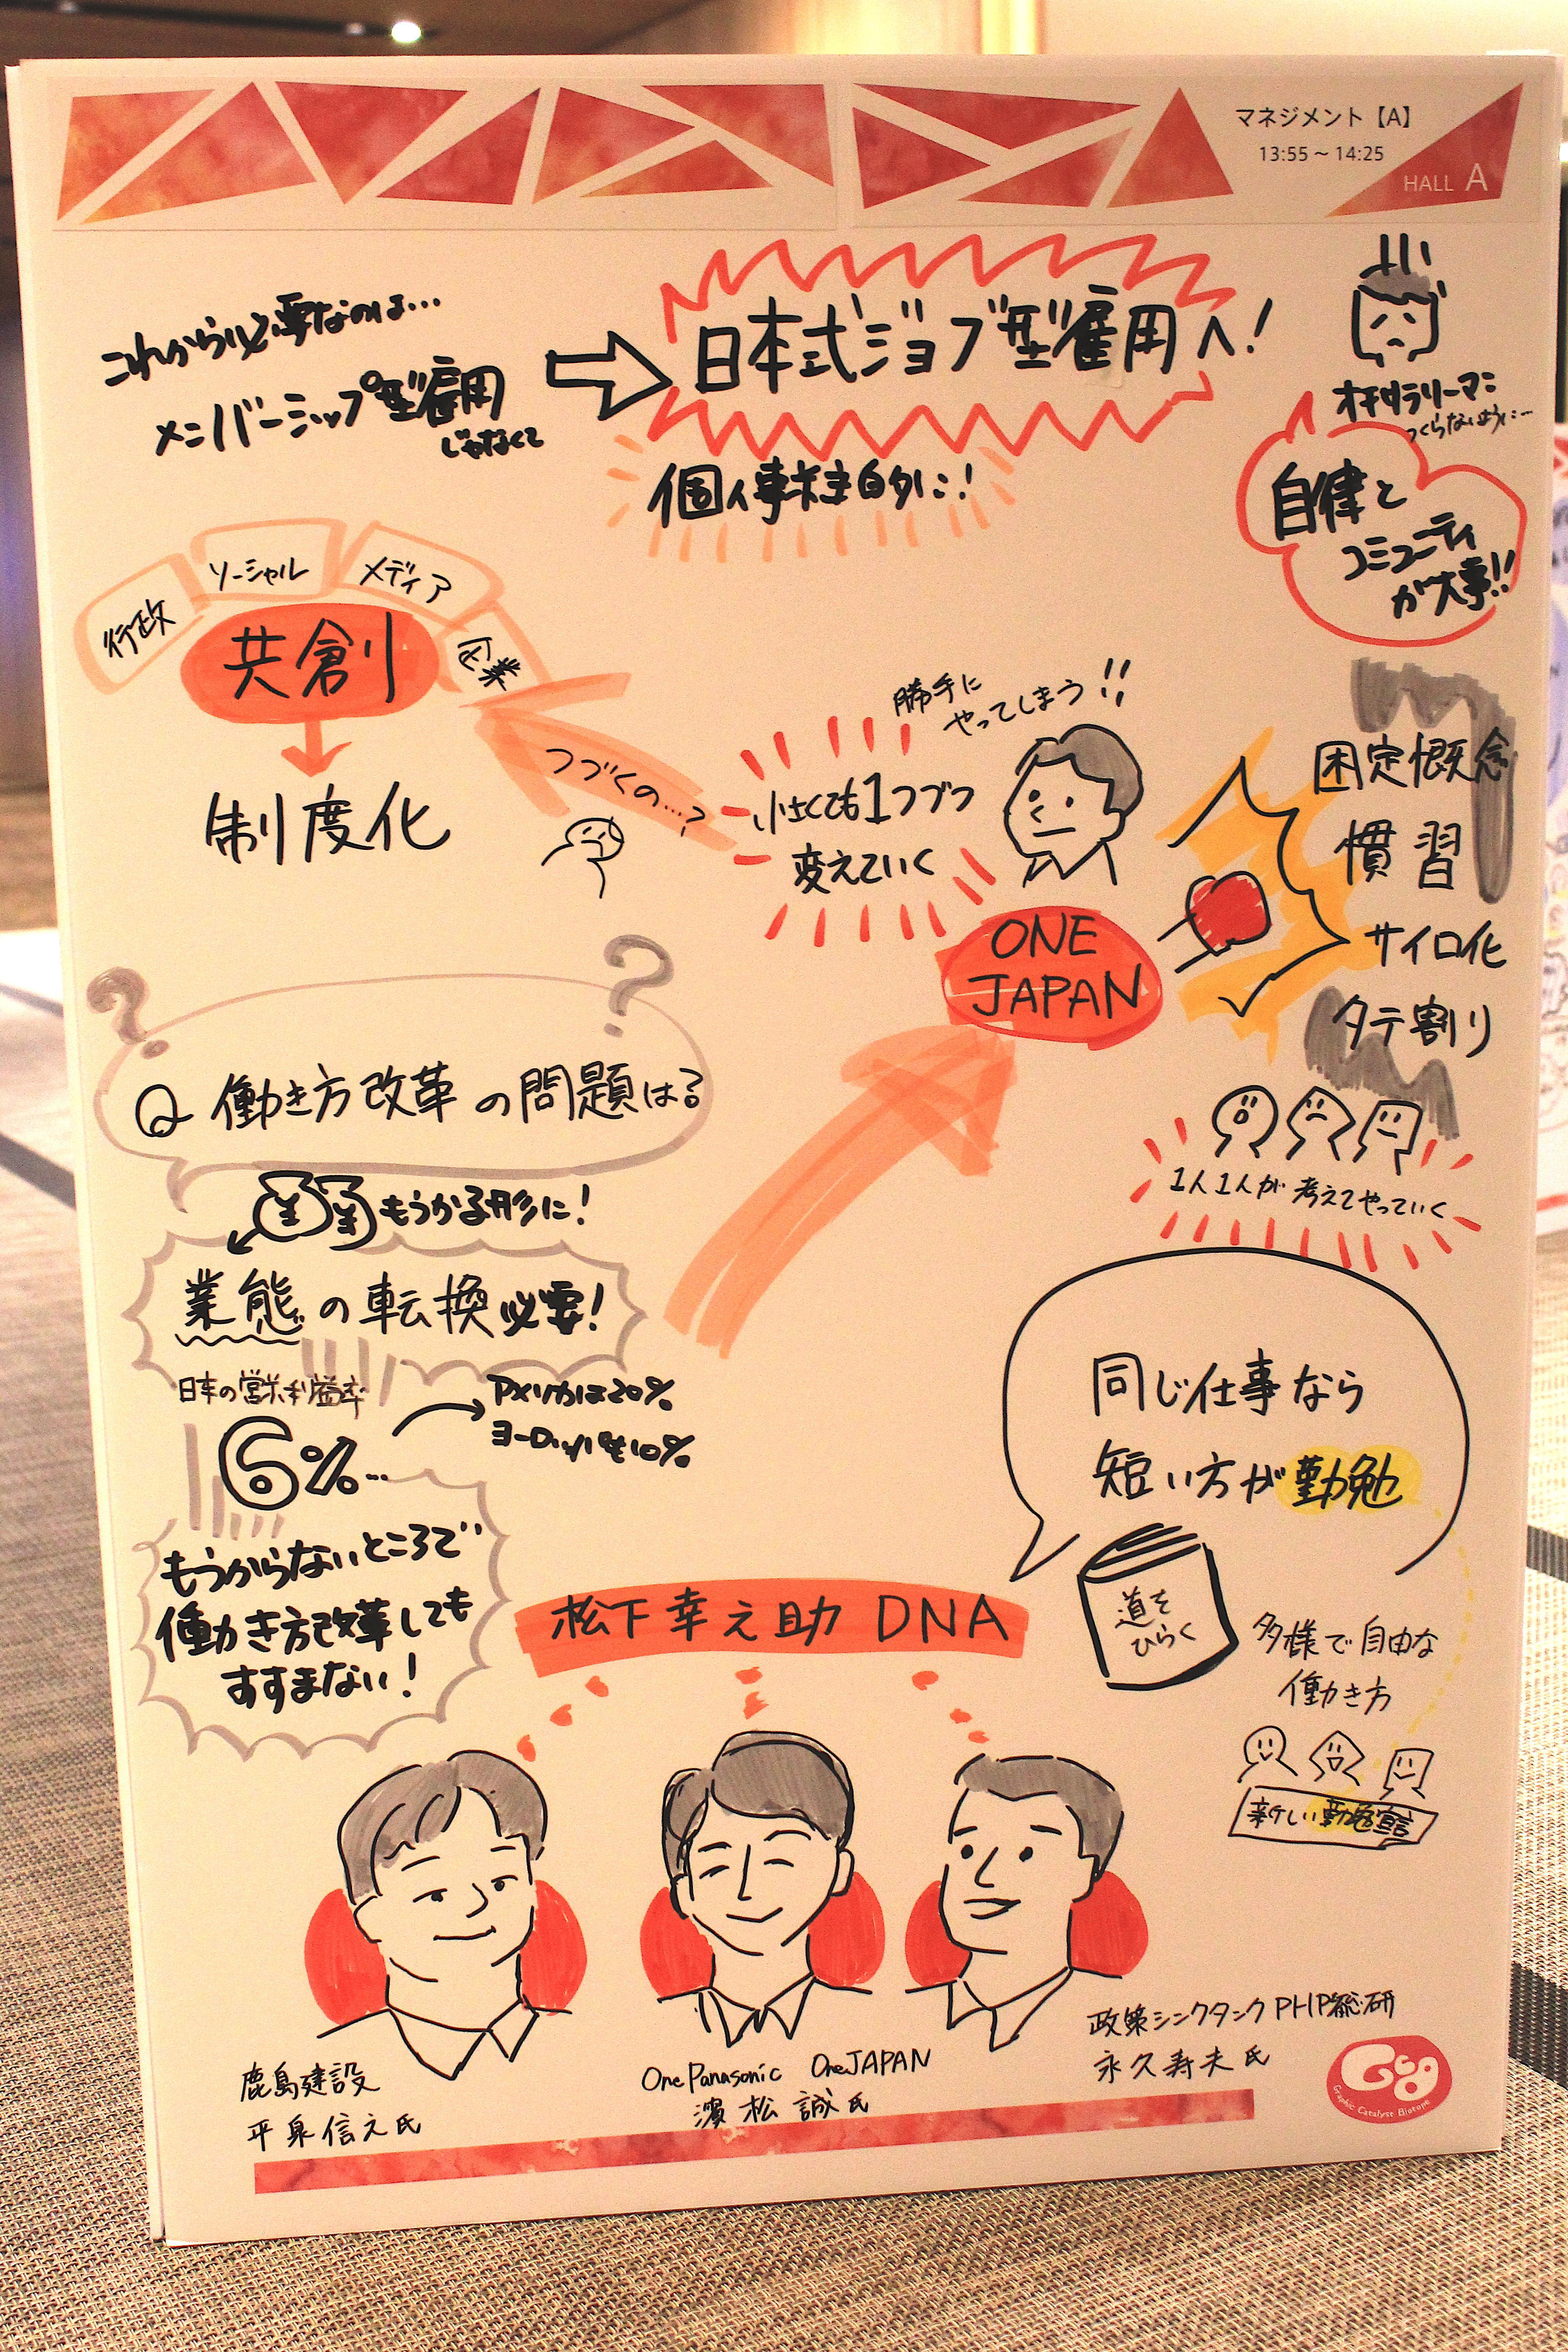 マネジメント【A】
13:55～14:25
HALL A
これから必要なのは…
メンバーシップ型雇用
じゃなくて
日本式ジョブ型雇用へ!
個人事業主的に!
オチサラリーマン
つくらないように…
自律と
コミューティ
が大事!!
行政
ソーシャル
メディア
企業
共創
制度化
つづくの…?
勝手に
やってしまう!!
小さくても1つづつ
変えていく
ONE
JAPAN
固定概念
慣習
サイロ化
タテ割り
1人1人が考えてやっていく
Q 働き方改革の問題は?
¥ ¥ もうかる形に!
業態の転換必要!
日本の営業利益率
6%…
アメリカは20%
ヨーロッパも10%
もうからないところで
働き方改革しても
すすまない!
同じ仕事なら
短い方が勤勉
道を
ひらく
多様で自由な
働き方
新しい勤勉宣言
松下幸之助 DNA
鹿島建設
平泉信之氏
OnePanasonic OneJAPAN
濱松 誠氏
政策シンクタンクPHP総研
永久寿夫氏
GCB
Graphic Catalyst Biotope